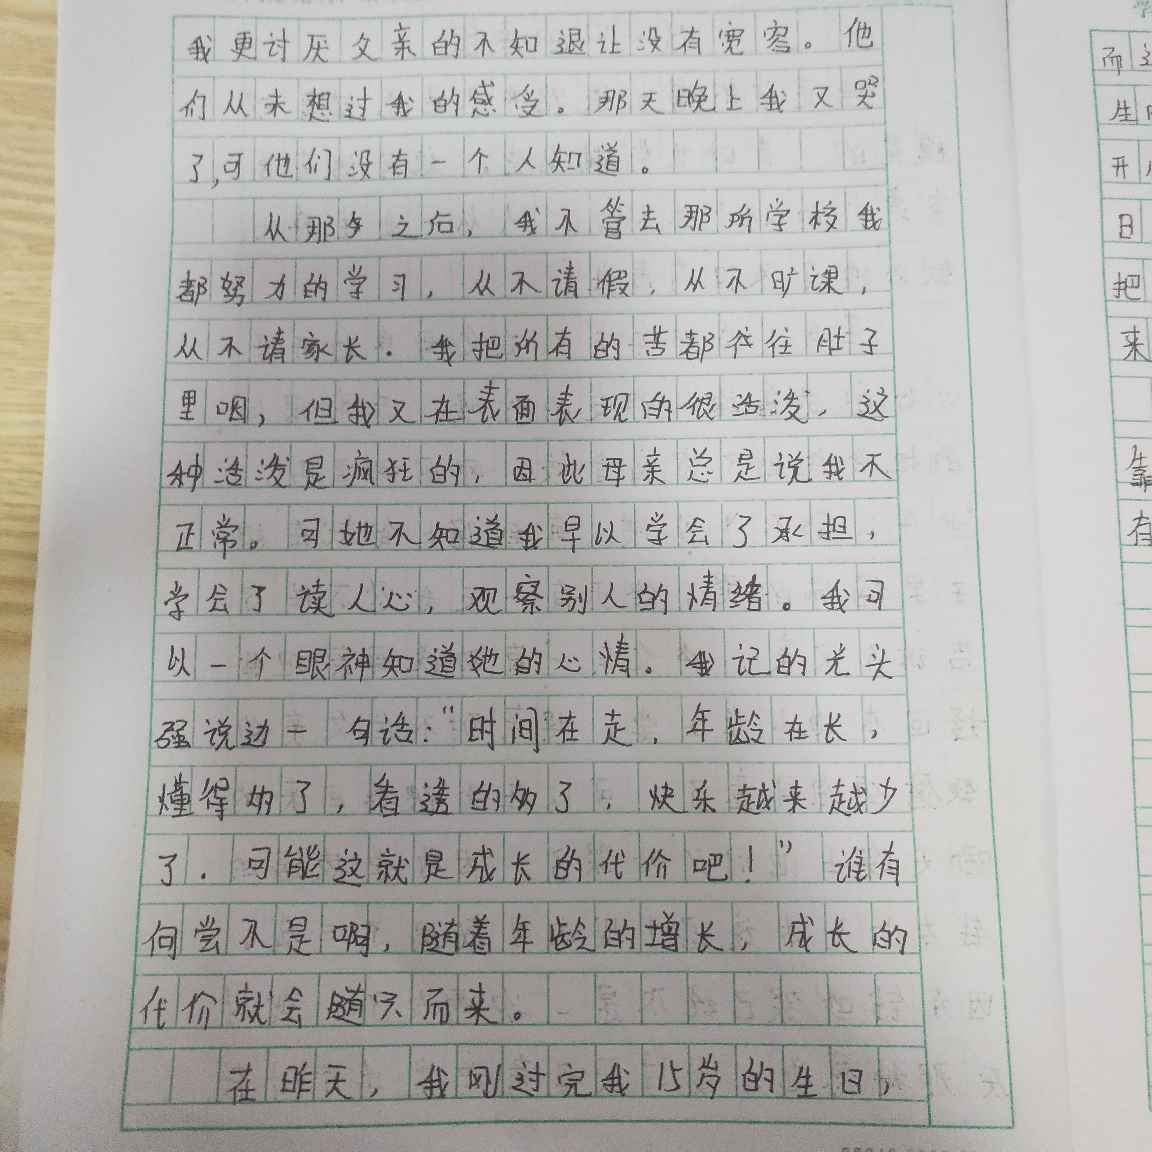 我更讨厌父亲的不知退让没有宽容。他
们从未想过我的感受。那天晚上我又哭
了,可他们没有一个人知道。
从那多之后，我不管去那所学校我
都努力的学习，从不请假，从不旷课，
从不请家长．我把所有的苦都往住肚子
里咽，但我又在表面表现的很活泼，这
种活泼是疯狂的，因此母亲总是说我不
正常。可她不知道我早以学会了承担，
学会了读人心，观察别人的情绪。我可
以一个眼神知道她的心情。我记的光头
强说边一句话：“时间在走，年龄在长，
懂得的了，看透的的了，快乐越来越少
了．可能这就是成长的代价吧！”谁有
何尝不是啊，随着年龄的增长，成长的
代价就会随只而来。
在昨天，我刚过完我15岁的生日，
而
生
开
日
把
来
靠
有